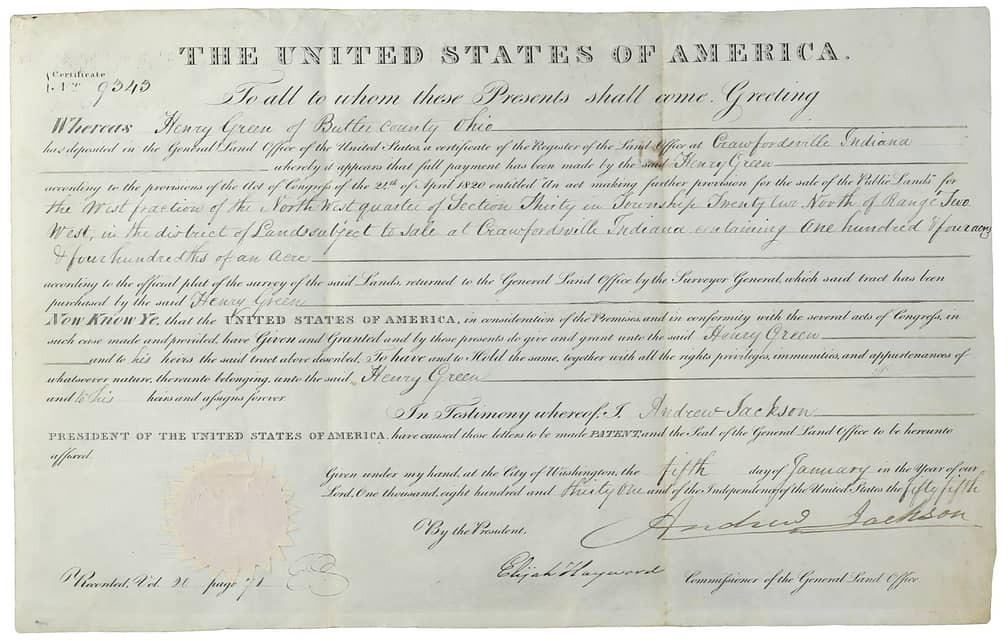 THE UNITED STATES OF AMERICA.
Certificate
No. 9343
To all to whom these Presents shall come, Greeting
Whereas Henry Green of Butler county Ohio
has deposited in the General Land Office of the United States, a certificate of the Register of the Land Office at Crawfordsville Indiana
whereby it appears that full payment has been made by the said Henry Green
according to the provisions of the Act of Congress of the 24th of April 1820 entitled "An act making further provision for the sale of the Public Lands" for
the West fraction of the North West quarter of Section Thirty in Township Twenty two North of Range Two
West, in the district of Lands subject to sale at Crawfordsville Indiana containing one hundred & four acres
& four hundredths of an acre
according to the official plat of the survey of the said Lands, returned to the General Land Office by the Surveyor General, which said tract has been
purchased by the said Henry Green
Now Know Ye, that the UNITED STATES OF AMERICA, in consideration of the Premises, and in conformity with the several acts of Congress, in
such case made and provided, have Given and Granted and by these presents do give and grant unto the said Henry Green
and to his heirs the said tract above described, To have and to Hold the same, together with all the rights privileges, immunities, and appurtenances of
whatsoever nature, thereunto belonging, unto the said Henry Green
and to his heirs and assigns forever.
In Testimony whereof, I, Andrew Jackson
PRESIDENT OF THE UNITED STATES OF AMERICA, have caused these letters to be made PATENT, and the Seal of the General Land Office to be hereunto
affixed.
Given under my hand, at the City of Washington, the fifth day of January in the Year of our
Lord, One thousand, eight hundred and thirty one and of the Independence of the United States the fifty fifth
Andrew Jackson
By the President,
Elijah Hayward Commissioner of the General Land Office
Recorded, Vol 20 page 71